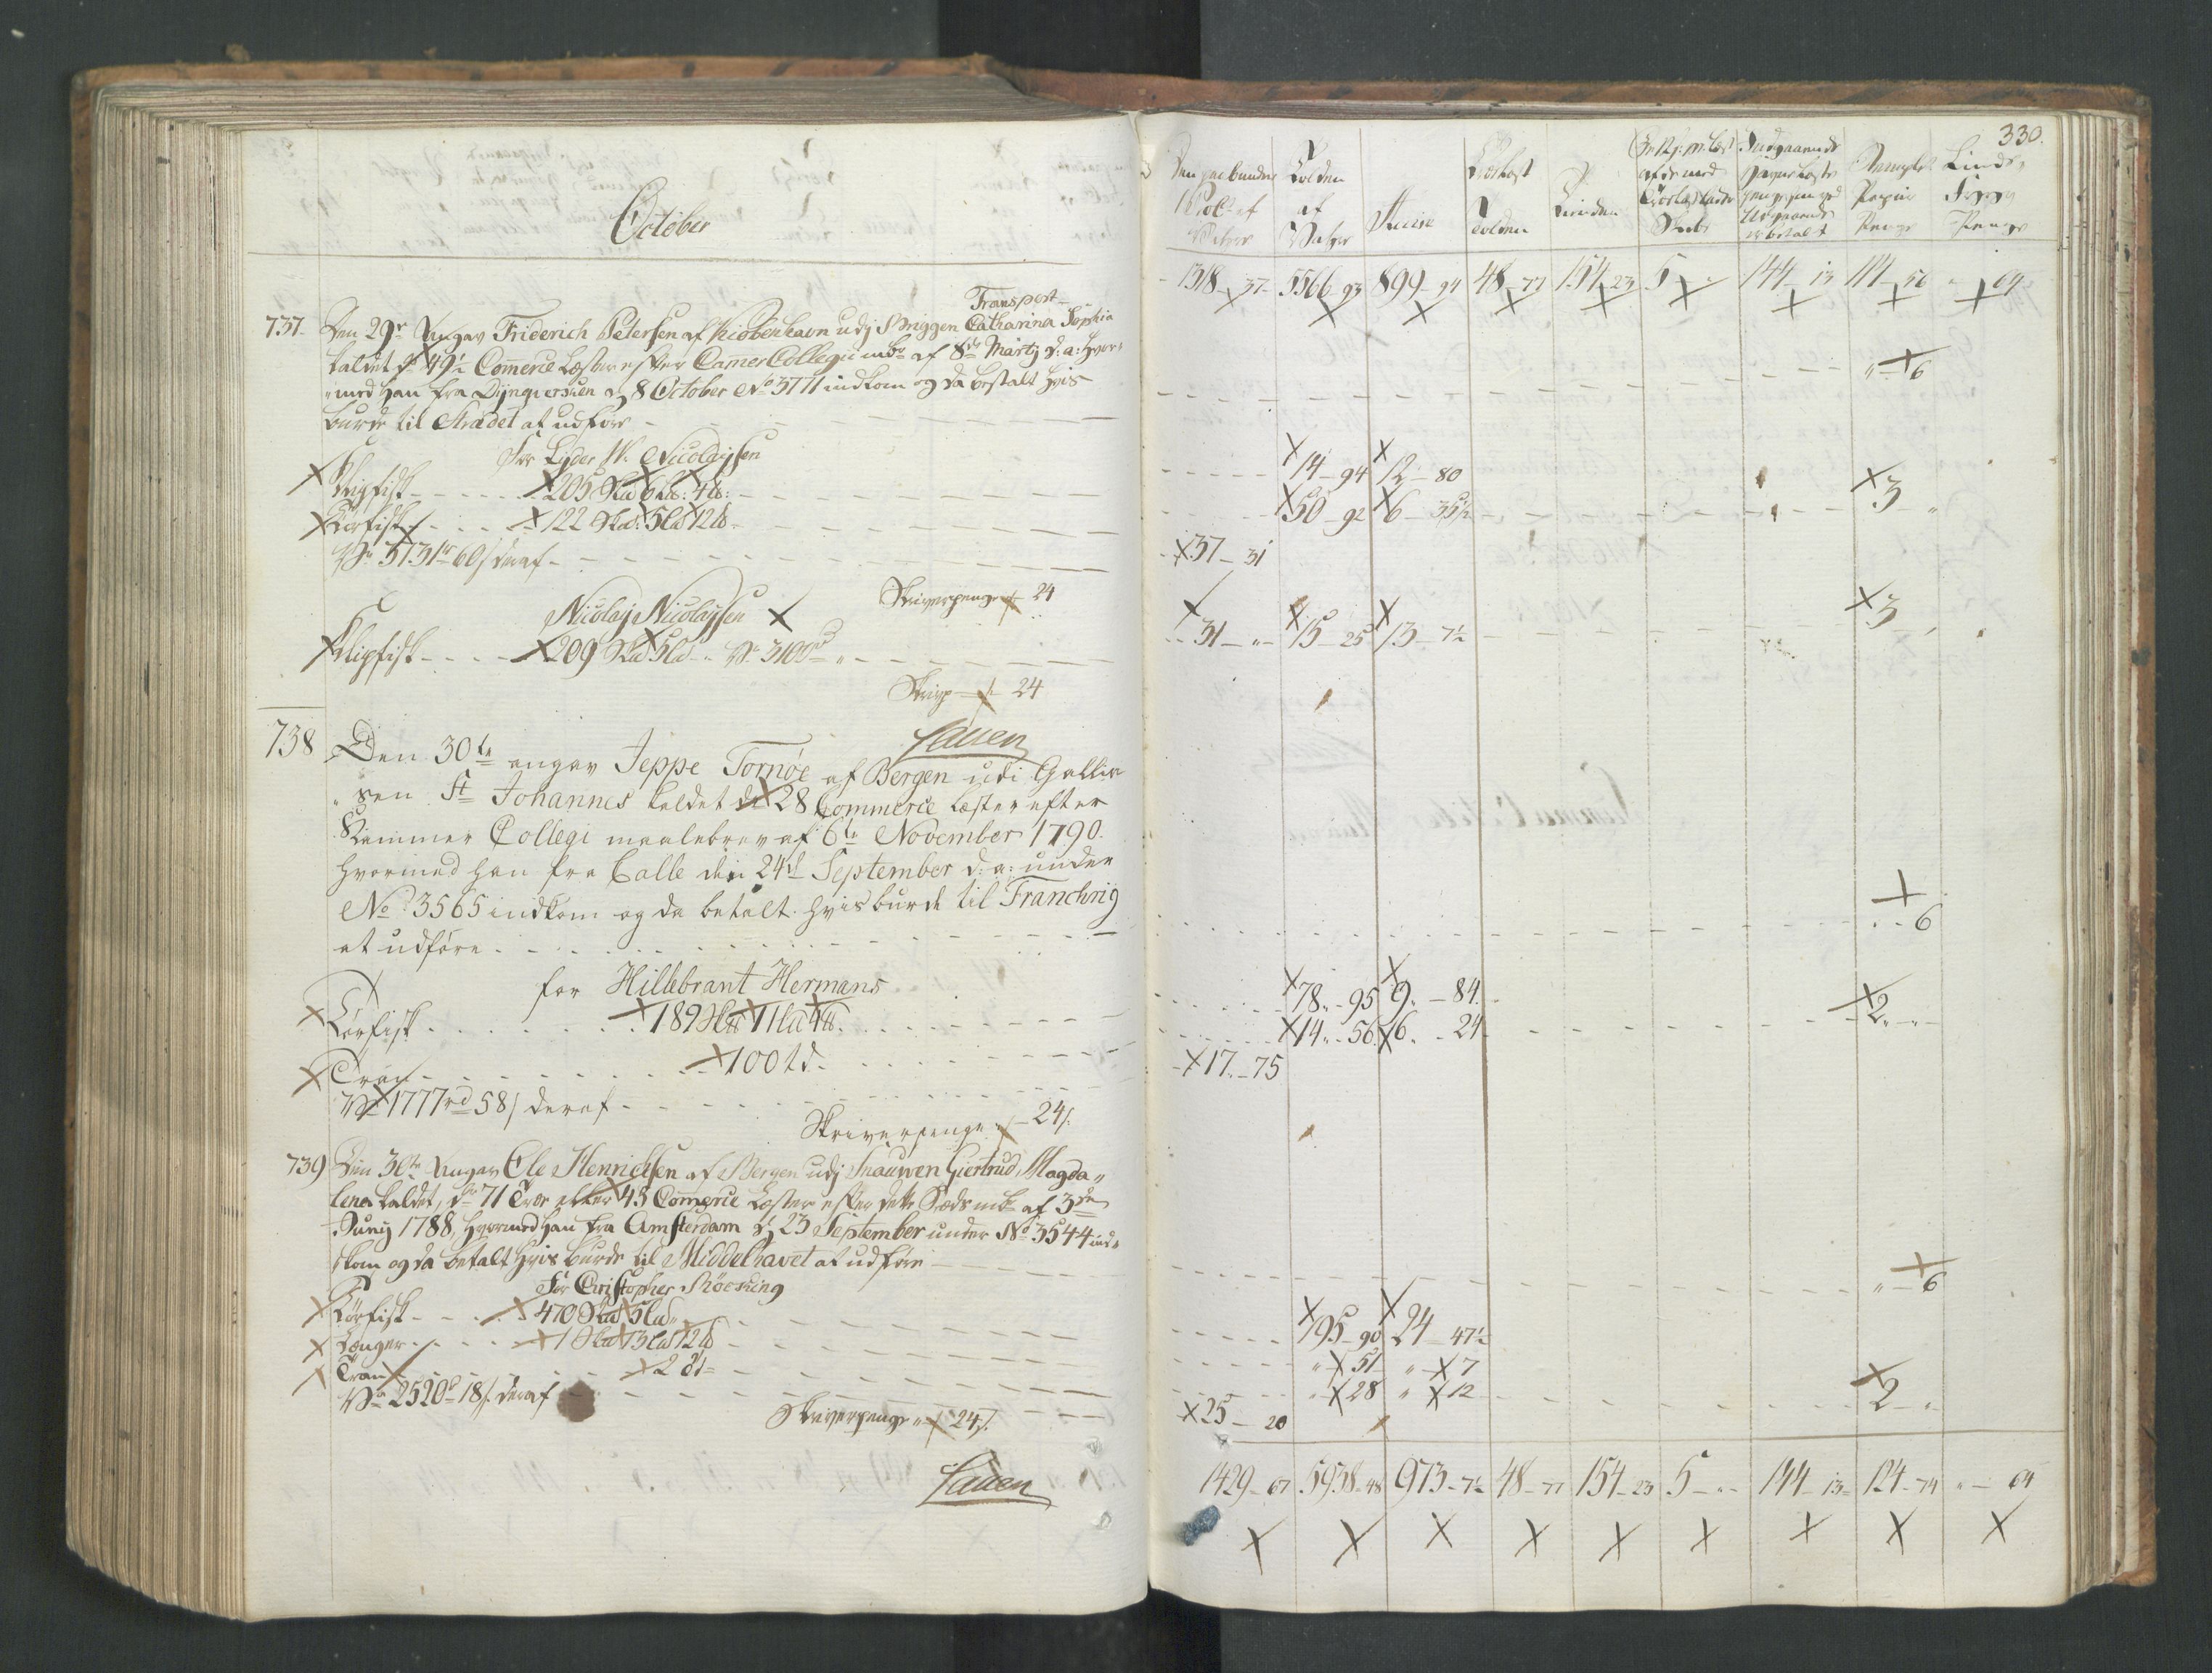 October
Transport
737 Den 29de Angav Friderich Petersen af Kiøbenhavn udj Briggen Catharina Sophia
kaldet dr 49½ Comerce Læster efter Camer Collegii mbr af 8de Martj d: a: hvor-
med han fra Dynqversken d 8 October No 3771 indkom og da betalt hvis
burde til Strædet at udføre
For Lyder W. Nicolaysen
Klipfisk 205 Skd 6 Ld: 4 lb:
Tørfisk 122 Skd: 5 Ld 12 lb
Vr 3731 rd 60 s deraf
Skriverpenge 24
Nicolaj Nicolaysen
Klipfisk 209 Skd 5 Ld Vr 3100 rd
Skrivp 24
Lauen
738 Den 30te angav Jeppe Tornöe af Bergen udi Gallia
sen St Johannes kaldet dr 28 Commerce Læster efter
Kammer Collegi maalebrev af 6te November 1790.
hvormed han fra Calle den 24d September d: a: under
No 3565 indkom og da betalt hvis burde til Franchrig
at udføre
for Hillebrant Hermans
Tørfisk 189 Skd 11 Ld 4 lb.
Tran 100 td.
Vr 1777 rd 58 s deraf
Skriverpenge 24 s.
739 Den 30te Angav Ole Henrichsen af Bergen udj Snauwen Giertrud Magda
lena kaldet, dr 71 Træ eller 43 Comerce Læster efter dette Stæds mbr af 3de
Junij 1788, hvormed han fra Amsterdam d 23 September under No 3544 ind-
kom og da betalt hvis burde til Middelhavet at udføre
For Cristopher Kröeking
Tørfisk 470 Skd 5 Ld
Længer 1 Skd 13 Ld 12 lb
Tran 2 td
Vr 2520 rd 18 s. deraf
Skriverpenge 24 s.
Lauen
330.
Told af Vahre
Tolden af Vahre
Accise
Tolden
Penge
Penge
1318 37 5566 93 899 94 48 77 154 23 5 144 13 111 56 64
6
14 94 12 80
50 92 6 35½ 3
37 31
31 15 25 13 7½ 3
6
78 95 9 84
14 56 6 24 2
17 75
6
195 90 24 47½
51 7
28 12 2
25 20
1429 67 5938 48 973 7½ 48 77 154 23 5 144 13 124 74 64